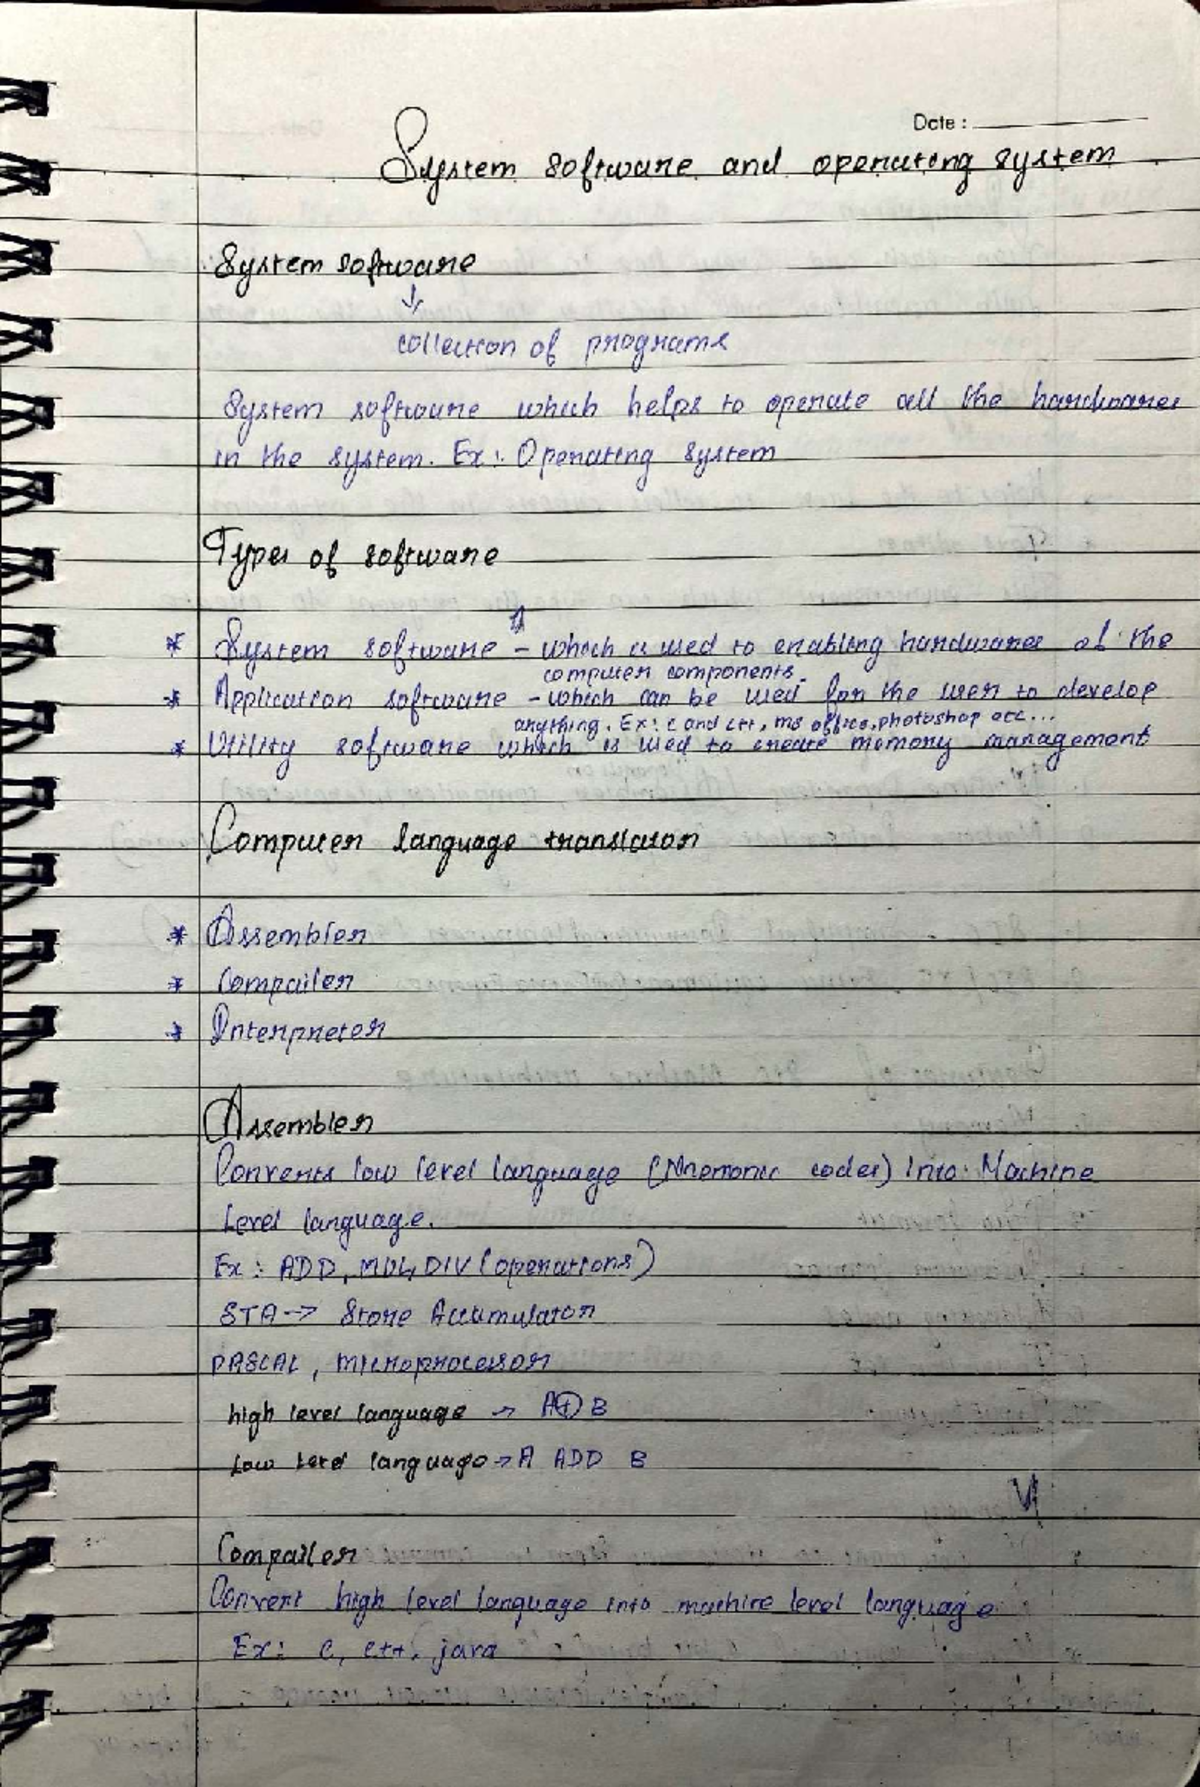 Date :
System software and operating system
System software
↓
collection of programs
System software which helps to operate all the hardwares
in the system. Ex: Operating system
Types of software
* System software - which is used to enabling hardwares of the
computer components.
* Application software - which can be used for the user to develop
anything. Ex: c and c++, ms office, photoshop etc...
* Utility software which is used to create memory management
Computer language translator
* Assembler
* Compailer
* Interpreter
Assembler
Converts low level language (Mnemonic codes) into Machine
Level language.
Ex: ADD, MUL, DIV (operations)
STA → Store Accumulator
PASCAL, microprocessor
high level language → A + B
Low level language → A ADD B
Compailer
Convert high level language into machine level language
Ex: c, c++, java